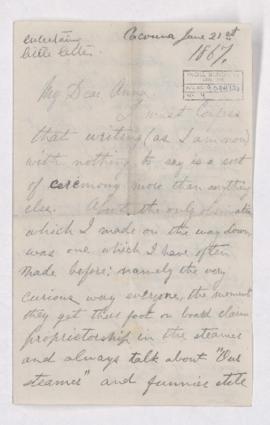 entertaining
little letter.
Cacouna June 21st
1867.
My Dear Anna
I must confess
that writing (as I am now)
with nothing to say is a sort
of ceremony more than anything
else. About the only observation
which I made on the way down
was one which I have often
made before; namely the very
curious way everyone, the moment
they get their foot on board claim
proprietorship in the steamer
and always talk about "Our
steamer" and